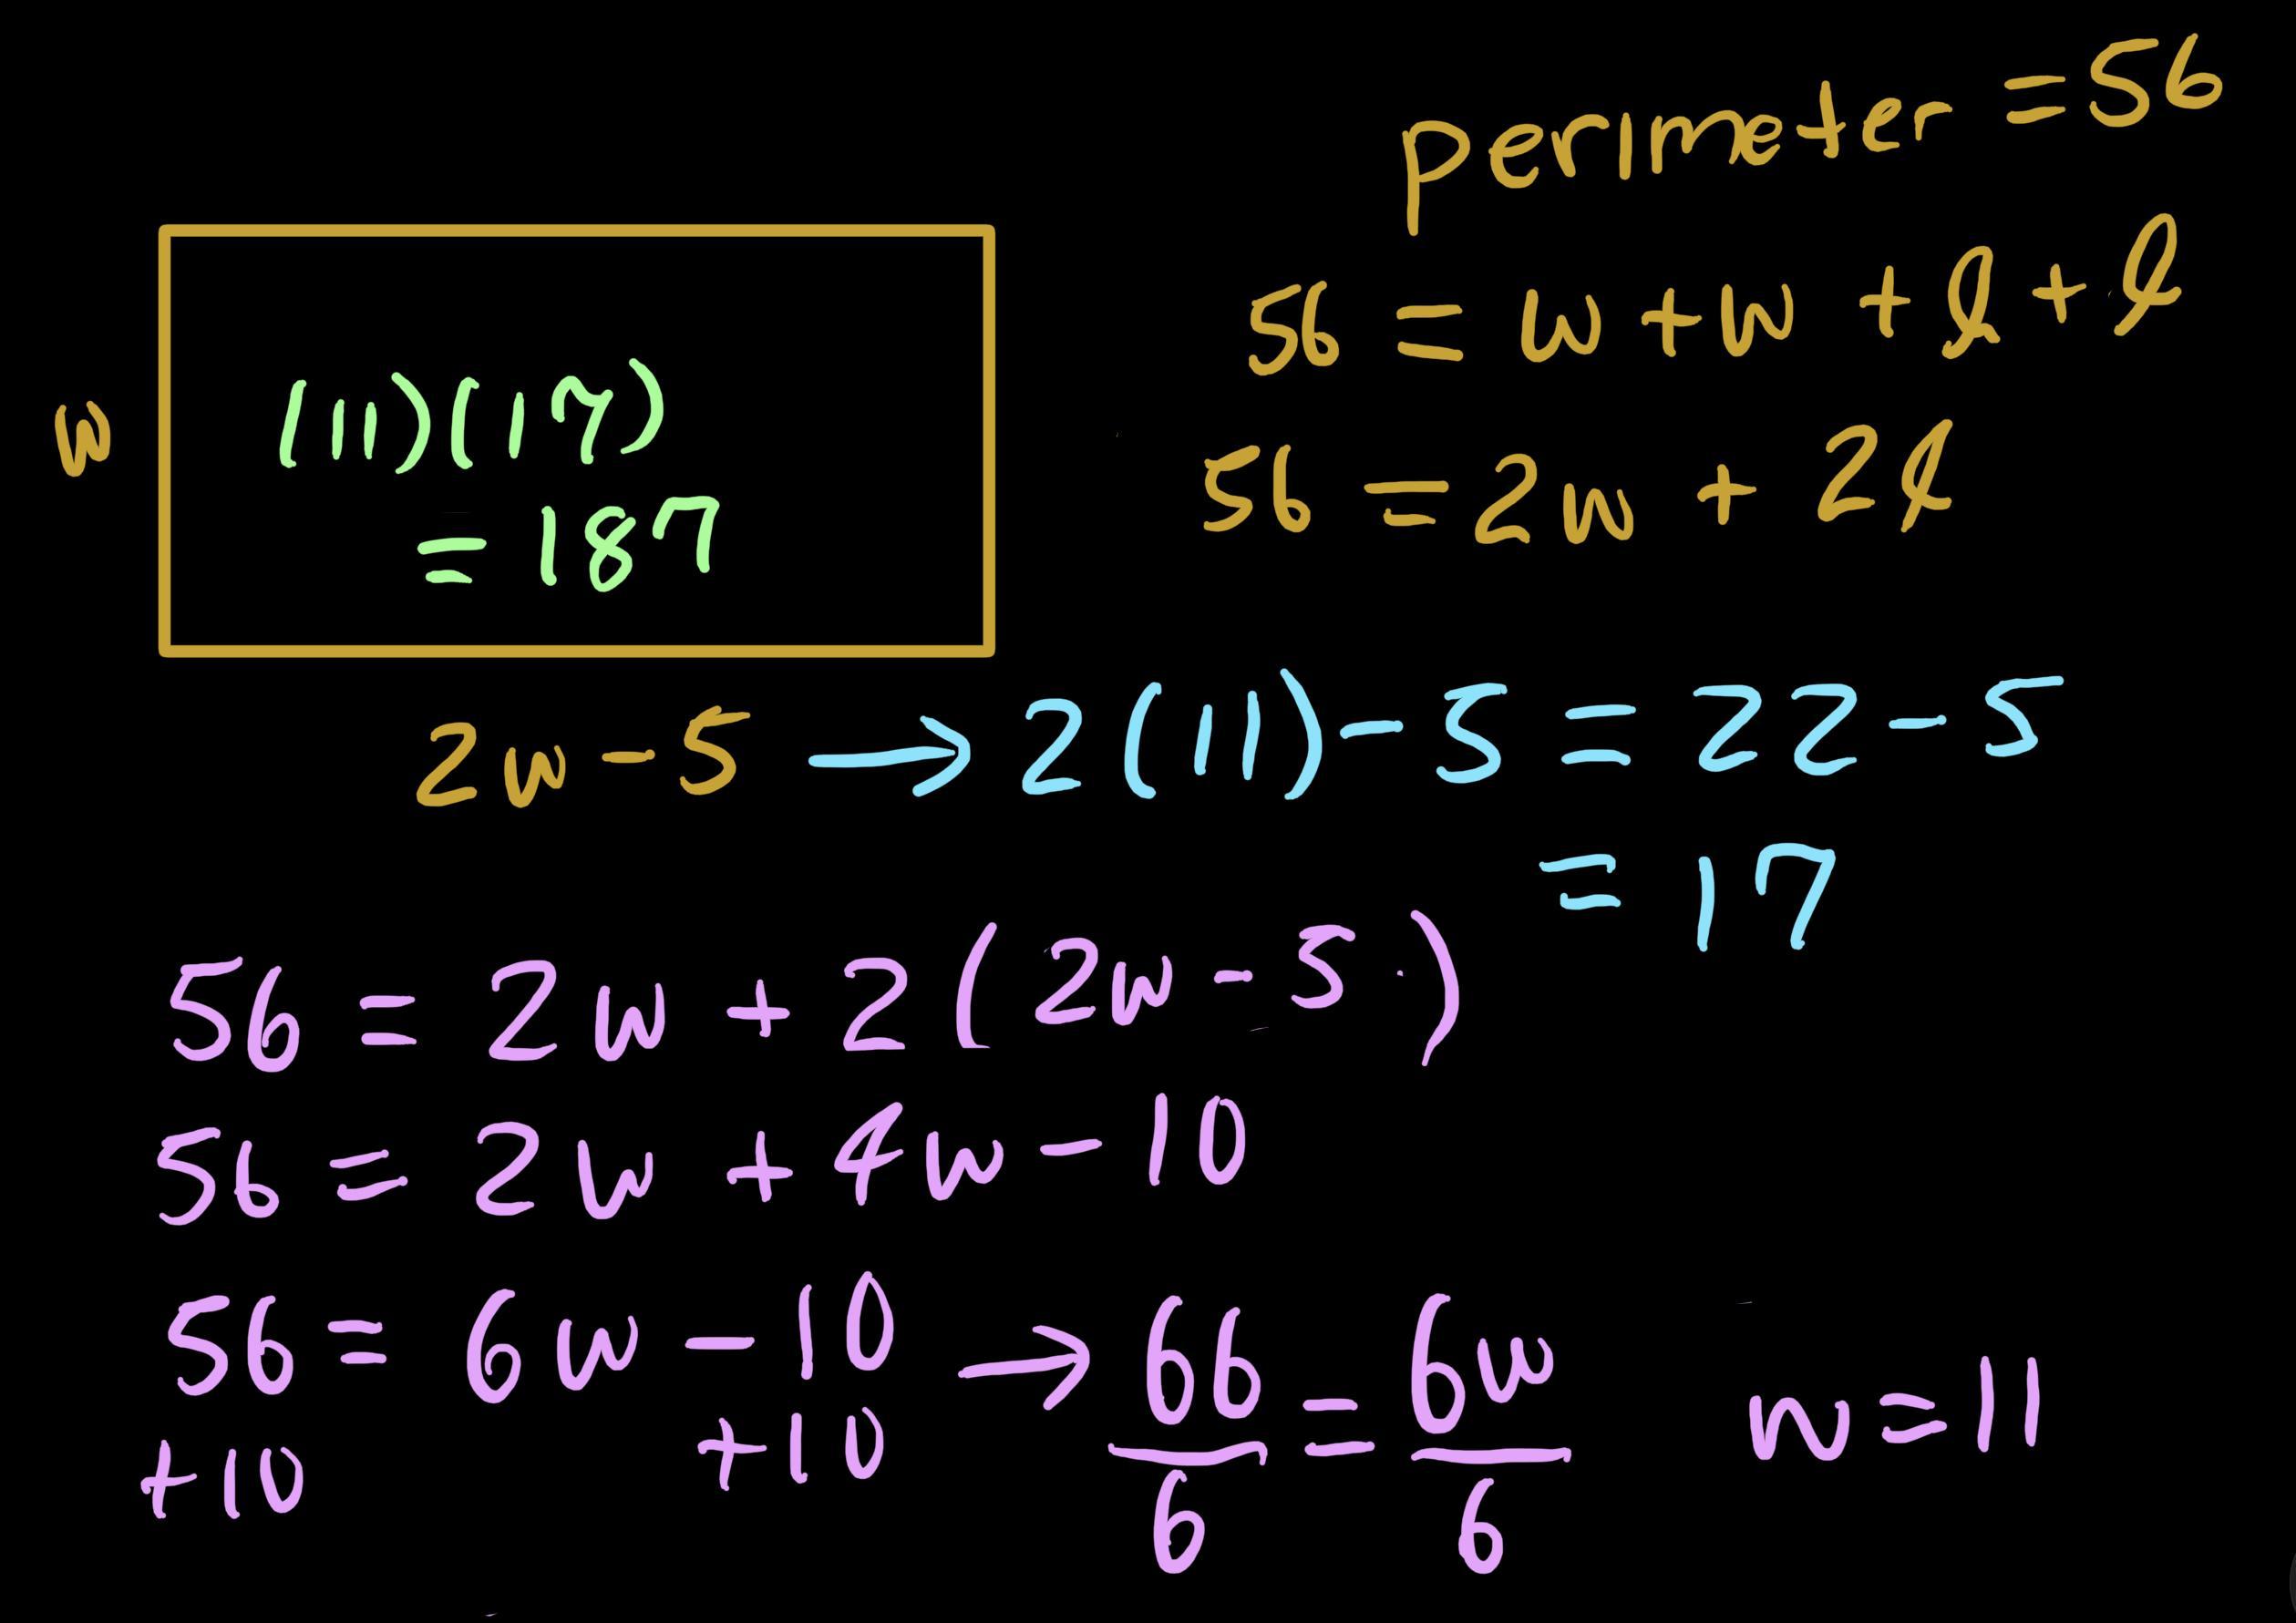 perimeter = 56
56 = w + w + l + l
56 = 2w + 2l
w
(11)(17)
= 187
2w - 5 → 2(11) - 5 = 22 - 5
= 17
56 = 2w + 2(2w - 5)
56 = 2w + 4w - 10
56 = 6w - 10 → 66/6 = 6w/6 w = 11
+10 +10